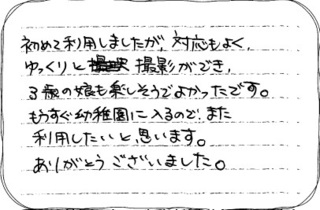 初めて利用しましたが、対応もよく、
ゆっくりと撮影ができ、
3歳の娘も楽しそうでよかったです。
もうすぐ幼稚園に入るので、また
利用したいと思います。
ありがとうございました。